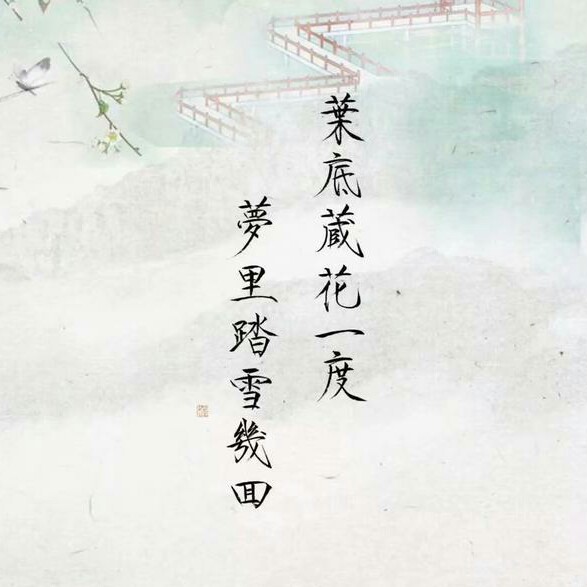 葉底蔵花一度
夢里踏雪幾回